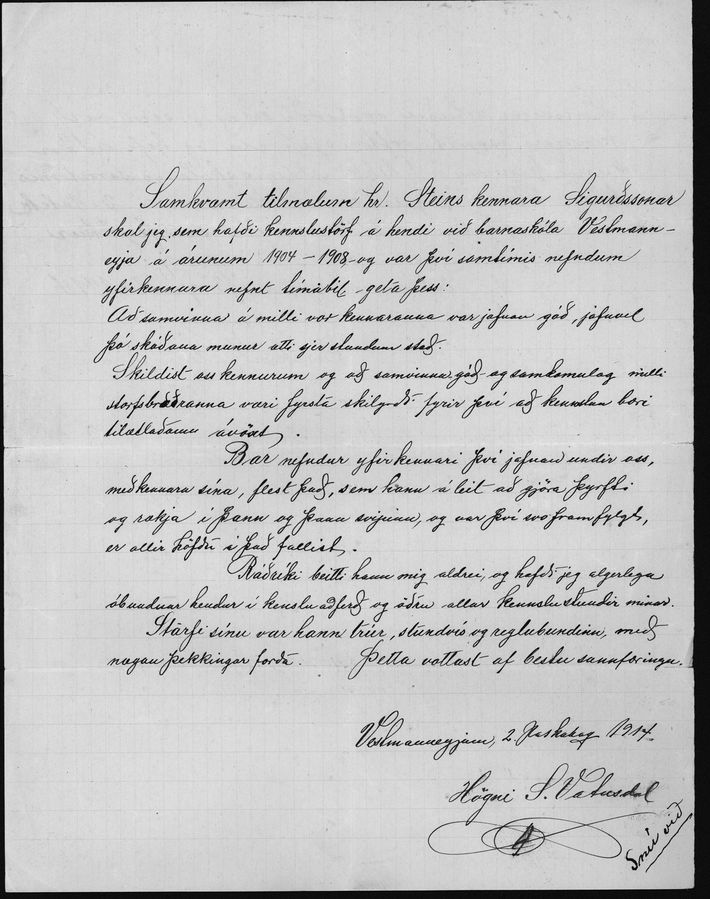 Samkvæmt tilmælum hr. Steins kennara Sigurðssonar
skal jeg, sem hafði kennslustörf á hendi við barnaskóla Vestmann-
eyja á árunum 1904 - 1908, og var því samtímis nefndum
yfirkennara nefnt tímabil, geta þess:
Að samvinna á milli vor kennaranna var jafnan góð, jafnvel
þó skoðana munur ætti sjer stundum stað.
Skildist oss kennurum og að samvinna góð og samkomulag milli
starfsbræðranna væri fyrsta skilyrði fyrir því að kennslan bæri
tilætlaðan ávöxt.
Bar nefndur yfirkennari því jafnan undir oss,
meðkennara sína, flest það, sem hann áleit að gjöra þyrfti
og rækja í þann og þann svipinn, og var því svo framfylgt,
er allir höfðu í það fallist.
Ráðríki beitti hann mig aldrei, og hafði jeg algerlega
óbundnar hendur í kensluaðferð og öðru allar kennslustundir mínar.
Starfi sínu var hann trúr, stundvís og reglubundinn, með
nægan þekkingar forða. Þetta vottast af bestu sannfæringu.
Vestmannaeyjum, 2. Páskadag 1914.
Högni S. Vatnsdal
Snú við